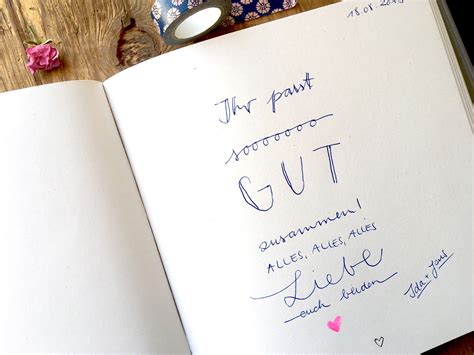 Ihr passt
sooooooo
GUT
zusammen!
ALLES, ALLES, ALLES
Liebe
euch beiden
Ida + Jens